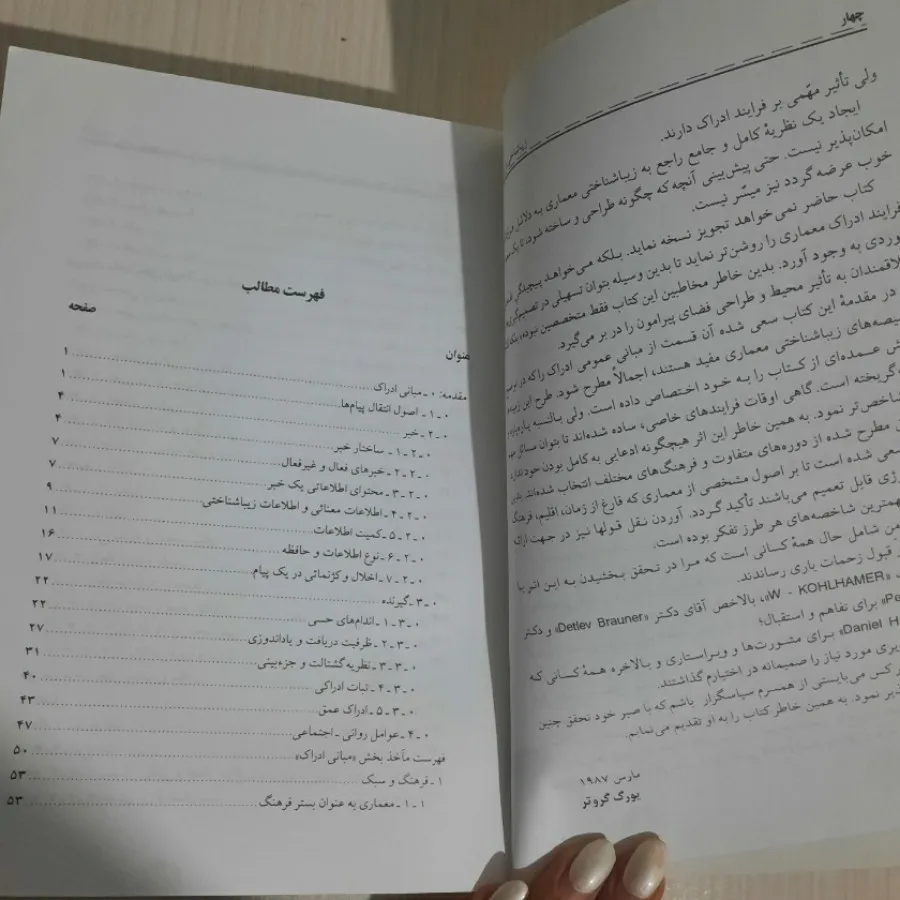 چهار
ولی تأثیر مهّمی بر فرایند ادراک دارند.
ایجاد یک نظریهٔ کامل و جامع راجع به زیباشناختی معماری به دلائل
امکان‌پذیر نیست. حتی پیش‌بینی آنچه که چگونه طراحی و ساخته شود، تا یک
خوب عرضه گردد نیز میسّر نیست.
کتاب حاضر نمی‌خواهد تجویز نسخه نماید. بلکه می‌خواهد پیچیدگی
فرایند ادراک معماری را روشن‌تر نماید تا بدین وسیله بتوان تسهیلی در تصمیم‌گیری
وردی به وجود آورد. بدین خاطر مخاطبین این کتاب فقط متخصصین نبوده، بلکه
لاقمندان به تأثیر محیط و طراحی فضای پیرامون را در بر می‌گیرد.
در مقدمهٔ این کتاب سعی شده آن قسمت از مبانی عمومی ادراک را که در
صیصه‌های زیباشناختی معماری مفید هستند، اجمالاً مطرح شود. طرح این
ش عمده‌ای از کتاب را به خود اختصاص داده است. ولی بالنسبه
گریخته است. گاهی اوقات فرایندهای خاصی، ساده شده‌اند تا بتوان مسائل
شاخص‌تر نمود. به همین خاطر این اثر هیچگونه ادعایی به کامل بودن خود ندارد
ن مطرح شده از دوره‌های متفاوت و فرهنگ‌های مختلف انتخاب شده‌اند.
سعی شده است تا بر اصول مشخصی از معماری که فارغ از زمان، اقلیم، فرهنگ
رژی قابل تعمیم می‌باشند تأکید گردد. آوردن نقل قولها نیز در جهت ارائه
همترین شاخصه‌های هر طرز تفکر بوده است.
من شامل حال همهٔ کسانی است که مرا در تحقق بخشیدن به این اثر با
قبول زحمات یاری رساندند.
«W - KOHLHAMER»، بالاخص آقای دکتر «Detlev Brauner» و دکتر
«Pe برای تفاهم و استقبال؛
«Daniel H برای مشورت‌ها و ویراستاری و بالاخره همهٔ کسانی که
یری مورد نیاز را صمیمانه در اختیارم گذاشتند.
ر کس می‌بایستی از همسرم سپاسگزار باشم که با صبر خود تحقق چنین
ذیر نمود. به همین خاطر کتاب را به او تقدیم می‌نمایم.
مارس ۱۹۸۷
یورگ گروتر
فهرست مطالب
عنوان صفحه
مقدمه: ۰ ـ مبانی ادراک ۱
۰ ـ ۱ ـ اصول انتقال پیام‌ها ۱
۰ ـ ۲ ـ خبر ۴
۰ ـ ۲ ـ ۱ ـ ساختار خبر ۴
۰ ـ ۲ ـ ۲ ـ خبرهای فعال و غیرفعال ۷
۰ ـ ۲ ـ ۳ ـ محتوای اطلاعاتی یک خبر ۷
۰ ـ ۲ ـ ۴ ـ اطلاعات معنائی و اطلاعات زیباشناختی ۹
۰ ـ ۲ ـ ۵ ـ کمیت اطلاعات ۱۱
۰ ـ ۲ ـ ۶ ـ نوع اطلاعات و حافظه ۱۶
۰ ـ ۲ ـ ۷ ـ اخلال و کژنمائی در یک پیام ۱۷
۰ ـ ۳ ـ گیرنده ۲۲
۰ ـ ۳ ـ ۱ ـ اندام‌های حسی ۲۲
۰ ـ ۳ ـ ۲ ـ ظرفیت دریافت و یاداندوزی ۲۷
۰ ـ ۳ ـ ۳ ـ نظریه گشتالت و جزءبینی ۳۱
۰ ـ ۳ ـ ۴ ـ ثبات ادراکی ۴۰
۰ ـ ۳ ـ ۵ ـ ادراک عمق ۴۳
۰ ـ ۴ ـ عوامل روانی ـ اجتماعی ۴۷
فهرست مآخذ بخش «مبانی ادراک» ۵۰
۱ ـ فرهنگ و سبک ۵۳
۱ ـ ۱ ـ معماری به عنوان بستر فرهنگ ۵۳